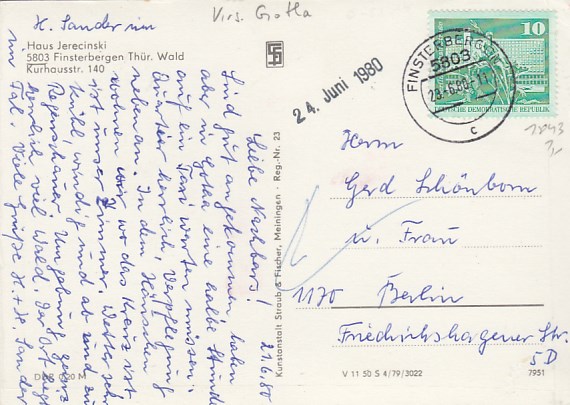 H. Sander un
Virs. Gotha
Haus Jerecinski
5803 Finsterbergen Thür. Wald
Kurhausstr. 140
21.6.80
Liebe Nachbars!
Sind gut angekommen, haben
aber in Gotha eine halbe Stunde
auf ein Taxi warten müssen.
Quartier herrlich, Verpflegung
nebenan. In dem Häuschen
wohnen wir, wo das Kreuz ist
ist unser Zimmer. Wetter sehr
kühl, windig und ab und zu
Regenschauer. Umgebung ganz
herrlich viel Wald. Der Ort liegt
im Tal. Viele Grüße H. + H. Sander
DDR 0,20 M
Kunstanstalt Straub & Fischer, Meiningen · Reg.-Nr. 23
24. Juni 1980
FINSTERBERGEN
5803
23.-6.80-11
c
10
DEUTSCHE DEMOKRATISCHE REPUBLIK
1843
Herrn
Gerd Schönborn
u. Frau
1170 Berlin
Friedrichshagener Str.
5D
V 11 50 S 4/79/3022
7951